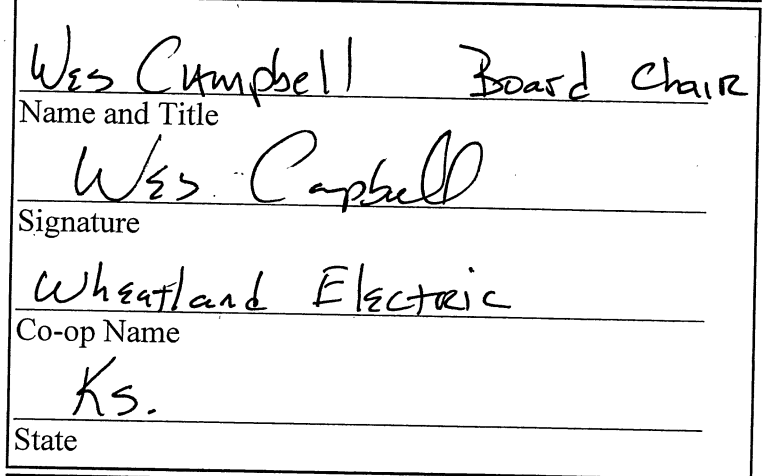 Wes Campbell Board Chair
Name and Title
Wes Campbell
Signature
Wheatland Electric
Co-op Name
Ks.
State